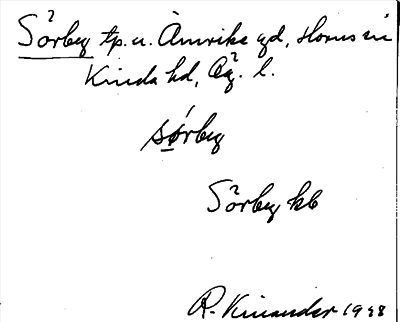 Sörby tp. u. Åmrike gd, Horns sn
Kinda hd, Ög. l.
sǿrby
Sörby kb
R. Kinander 1948